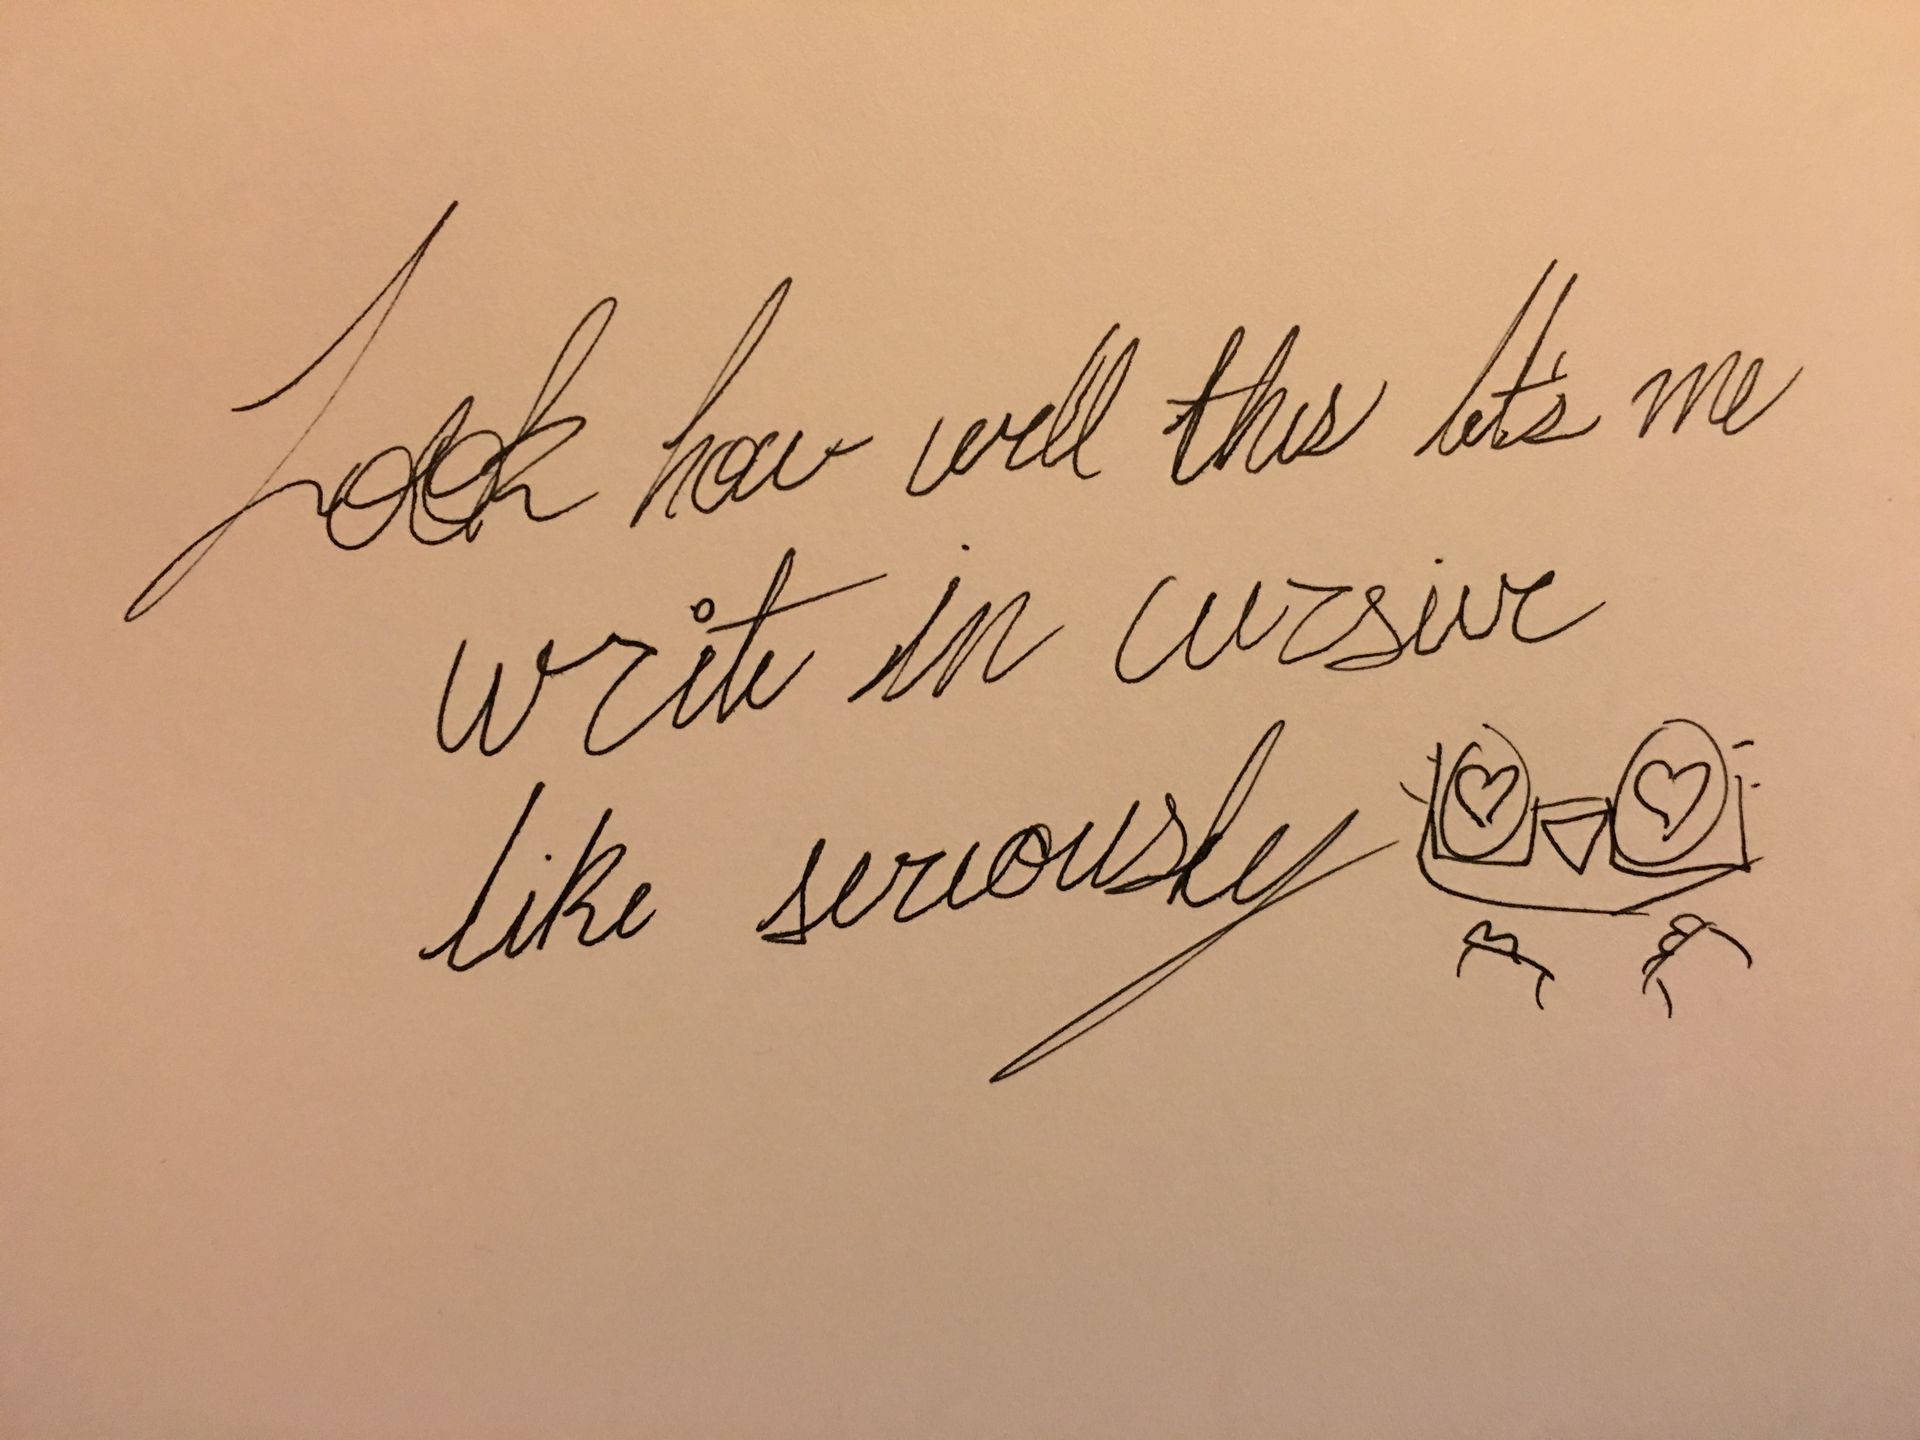 Look how well this let's me
write in cursive
like seriously